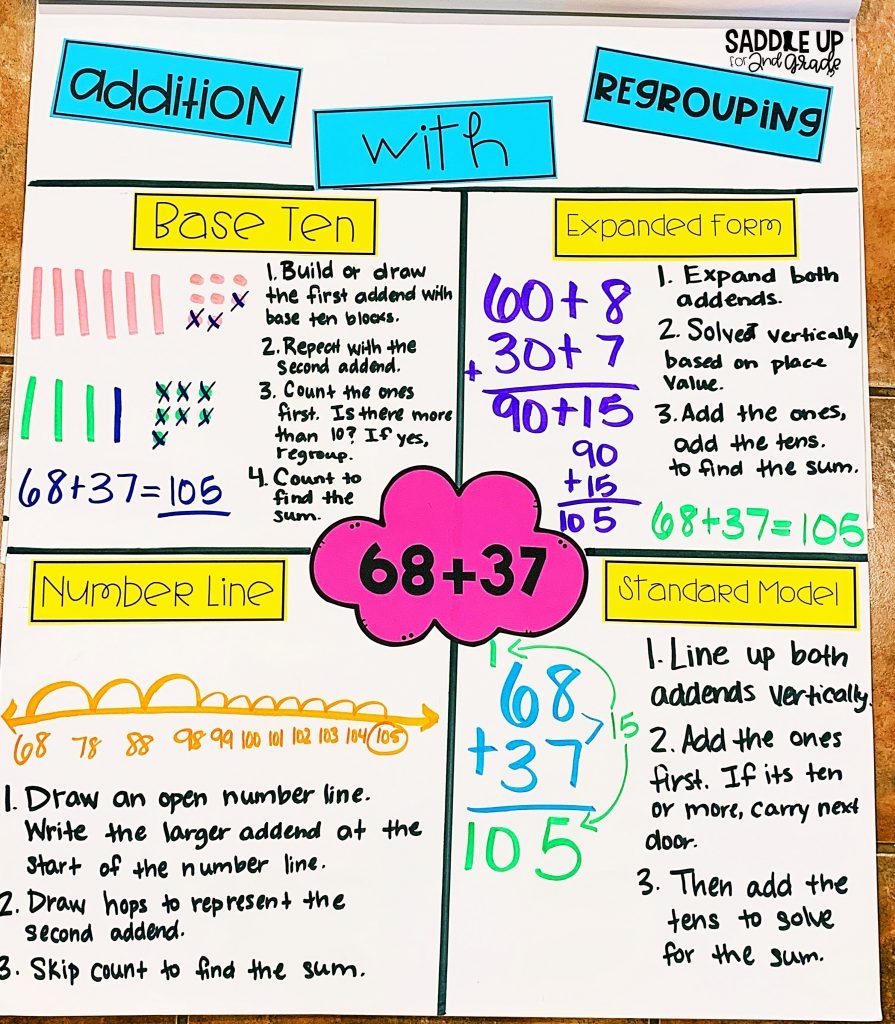 SADDLE UP
for 2nd Grade
addition
with
REgROUPiNg
Base Ten
1. Build or draw
the first addend with
base ten blocks.
2. Repeat with the
second addend.
3. Count the ones
first. Is there more
than 10? If yes,
regroup.
4. Count to
find the
sum.
68+37=105
Expanded Form
60+8
+30+7
90+15
90
+15
105
1. Expand both
addends.
2. Solved vertically
based on place
value.
3. Add the ones,
add the tens.
to find the sum.
68+37=105
68+37
Number Line
68 78 88 98 99 100 101 102 103 104 105
1. Draw an open number line.
Write the larger addend at the
start of the number line.
2. Draw hops to represent the
second addend.
3. Skip count to find the sum.
Standard Model
1
68
+37
15
105
1. Line up both
addends vertically.
2. Add the ones
first. If its ten
or more, carry next
door.
3. Then add the
tens to solve
for the sum.